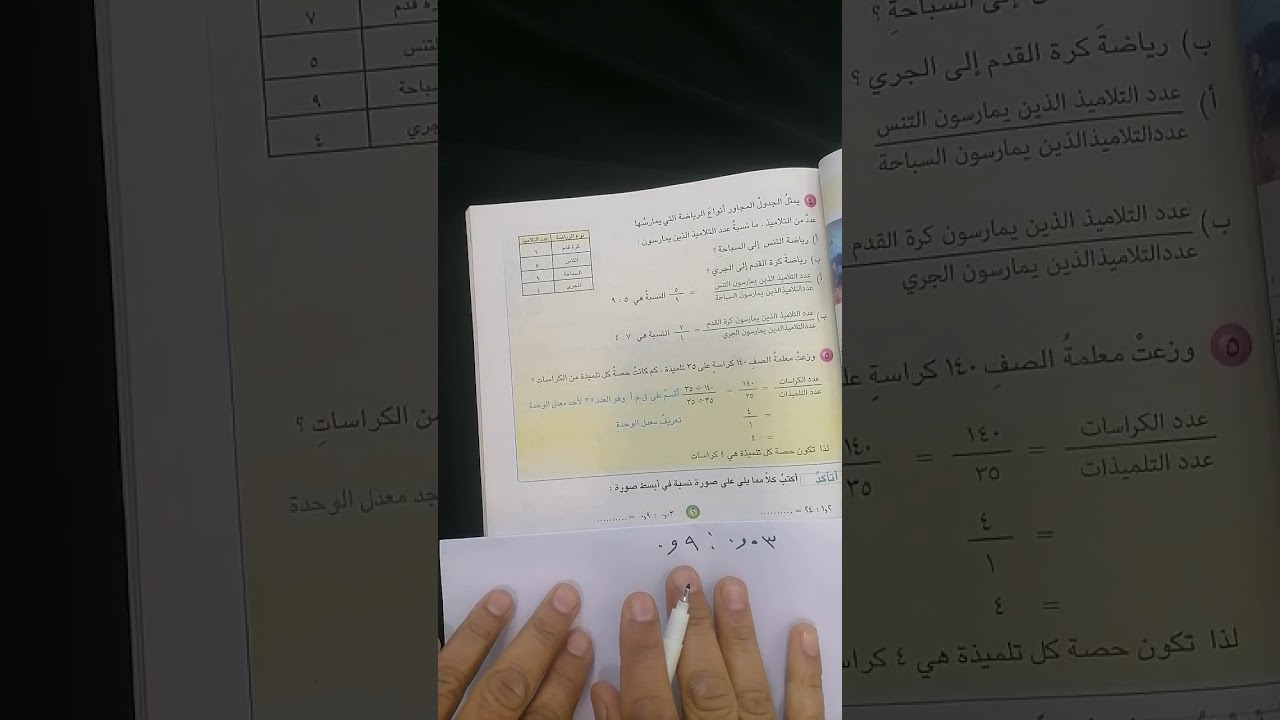 ٤ يمثلُ الجدولُ المجاور أنواعَ الرياضة التي يمارسُها
عددٌ من التلاميذ. ما نسبةُ عدد التلاميذ الذين يمارسون :
أ) رياضةَ التنس إلى السباحةِ ؟
ب) رياضةَ كرة القدم إلى الجري ؟
نوع الرياضة عدد التلاميذ
كرة قدم ٧
التنس ٥
السباحة ٩
الجري ٤
أ) عدد التلاميذ الذين يمارسون التنس / عددالتلاميذالذين يمارسون السباحة = ٥/٩ النسبةُ هي ٥ : ٩
ب) عدد التلاميذ الذين يمارسون كرة القدم / عددالتلاميذالذين يمارسون الجري = ٧/٤ النسبة هي ٧ : ٤
٥ وزعتْ معلمةُ الصفِ ١٤٠ كراسةٍ على ٣٥ تلميذة ، كم كانتْ حصةُ كل تلميذة من الكراساتِ ؟
عدد الكراسات / عدد التلميذات = ١٤٠/٣٥ = ١٤٠ ÷ ٣٥ / ٣٥ ÷ ٣٥ أقسمُ على ق.م.أ وهو العدد ٣٥ لأجد معدل الوحدة
= ٤/١ تعريفُ معدل الوحدةِ
= ٤
لذا تكون حصة كل تلميذة هي ٤ كراسات
أتأكدُ أكتبُ كلاً مما يلي على صورة نسبة في أبسط صورة :
١,٢ : ٢٤ = .......... ٢ ٠,٠٣ : ٠,٩ = ..........
٠,٠٣ : ٠,٩